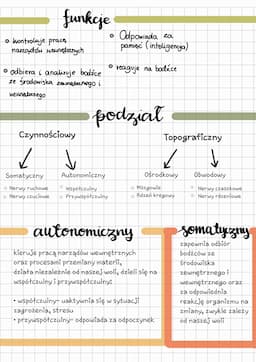 funkcje
• kontroluje pracę
narządów wewnętrznych
• Odpowiada za
pamięć (inteligencja)
• odbiera i analizuje bodźce
ze środowiska zewnętrznego i
wewnętrznego
• reaguje na bodźce
podział
Czynnościowy
Topograficzny
Somatyczny
Autonomiczny
Ośrodkowy
Obwodowy
Nerwy ruchowe
Nerwy czuciowe
Współczulny
Przywspółczulny
Mózgowie
Rdzeń kręgowy
Nerwy czaszkowe
Nerwy rdzeniowe
autonomiczny
kieruje pracą narządów wewnętrznych
oraz procesami przemiany materii,
działa niezależnie od naszej woli, dzieli się na
współczulny i przywspółczulny:
• współczulny- uaktywnia się w sytuacji
zagrożenia, stresu
• przywspółczulny- odpowiada za odpoczynek
somatyczny
zapewnia odbiór
bodźców ze
środowiska
zewnętrznego i
wewnętrznego oraz
za odpowiednia
reakcję organizmu na
zmiany, zwykle zależy
od naszej woli